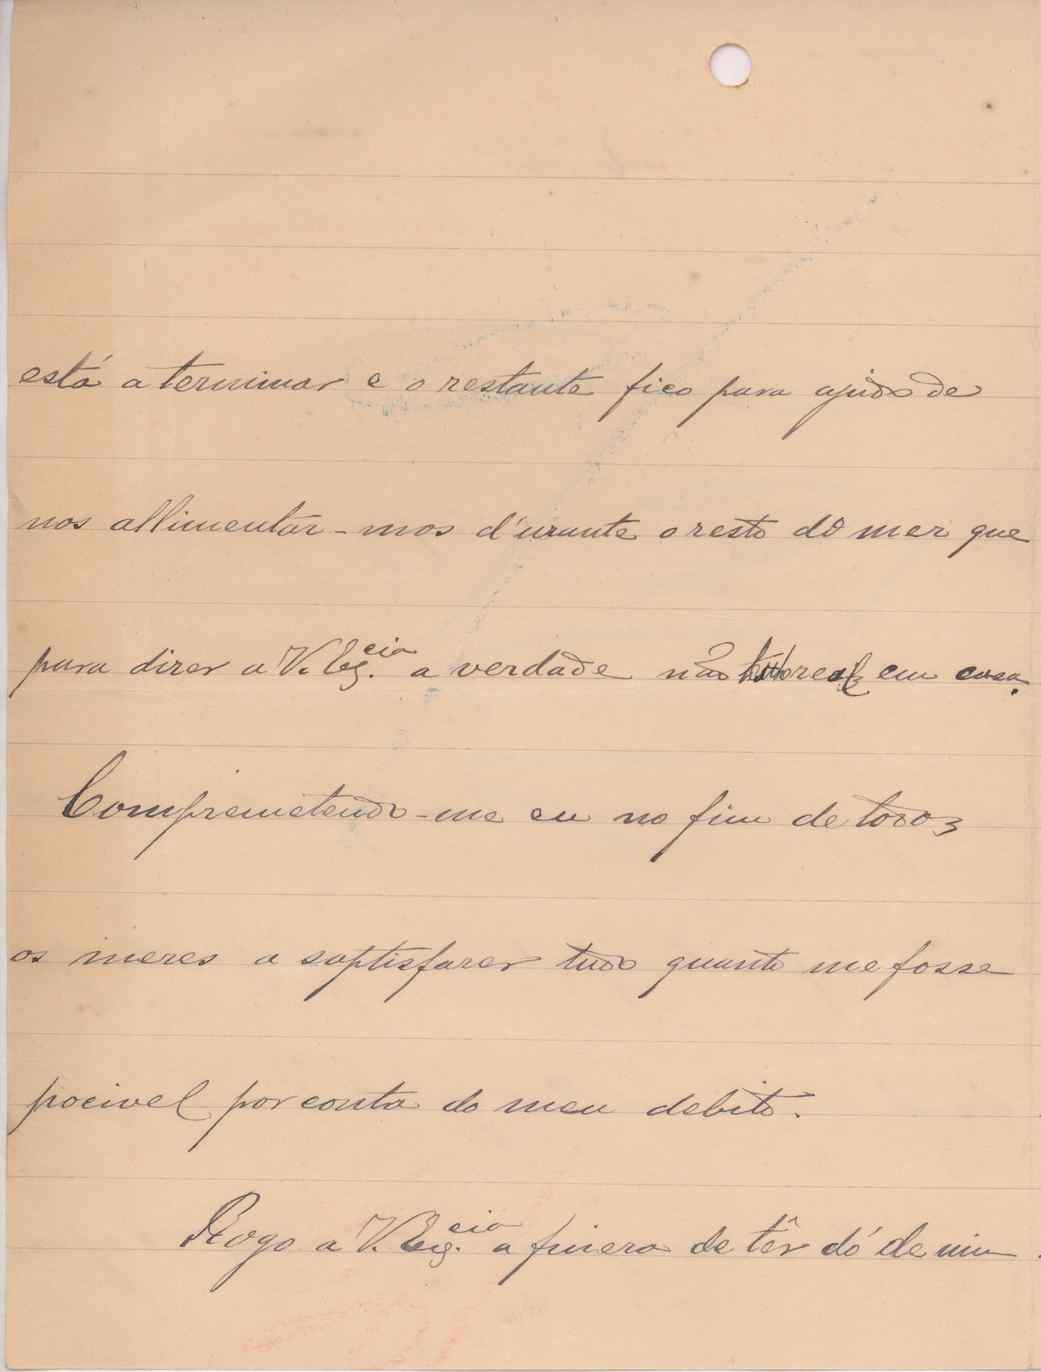 está a terminar e o restante fico para ajuda de
nos allimentar-mos d'urante o resto do mez que
para dizer a V. Ex.cia a verdade não real em casa.
Compremetendo-me eu no fim de todos
os mezes a saptisfazer tudo quanto me fosse
pocivel por conta do meu debito.
Rogo a V. Ex.cia a fineza de têr dó de mim